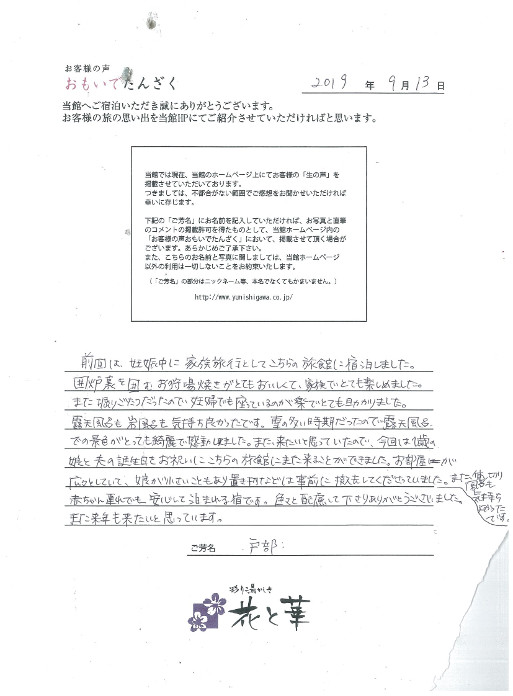 お客様の声
おもいでたんざく
2019 年 9 月 13 日
当館へご宿泊いただき誠にありがとうございます。
お客様の旅の思い出を当館HPにてご紹介させていただければと思います。
当館では現在、当館のホームページ上にてお客様の「生の声」を
掲載させていただいております。
つきましては、不都合がない範囲でご感想をお聞かせいただければ
幸いに存じます。
下記の「ご芳名」にお名前を記入していただければ、お写真と直筆
のコメントの掲載許可を得たものとして、当館ホームページ内の
「お客様の声おもいでたんざく」において、掲載させて頂く場合が
ございます。あらかじめご了承下さい。
また、こちらのお名前と写真に関しましては、当館ホームページ
以外の利用は一切しないことをお約束いたします。
(「ご芳名」の部分はニックネーム等、本名でなくてもかまいません。)
http://www.yunishigawa.co.jp/
前回は、妊娠中に家族旅行としてこちらの旅館に宿泊しました。
囲炉裏を囲むお狩場焼きがとてもおいしくて、家族でとても楽しめました。
また掘りごたつだったので妊婦でも座っているのが楽でとても助かりました。
露天風呂も岩風呂も気持ち良かったです。雪の多い時期だったので露天風呂
での景色がとっても綺麗で感動しました。また、来たいと思っていたので、今回は1歳の
娘と夫の誕生日をお祝いにこちらの旅館にまた来ることができました。お部屋が
広々としていて、娘が小さいこともあり置き物などは事前に撤去してくださっていました。
赤ちゃん連れでも安心して泊まれる宿です。色々と配慮して下さりありがとうございました。
また、貸切り
風呂も
気持ち
よかった
です。
また来年も来たいと思っています。
ご芳名 戸部
彩り湯かしき
花と華